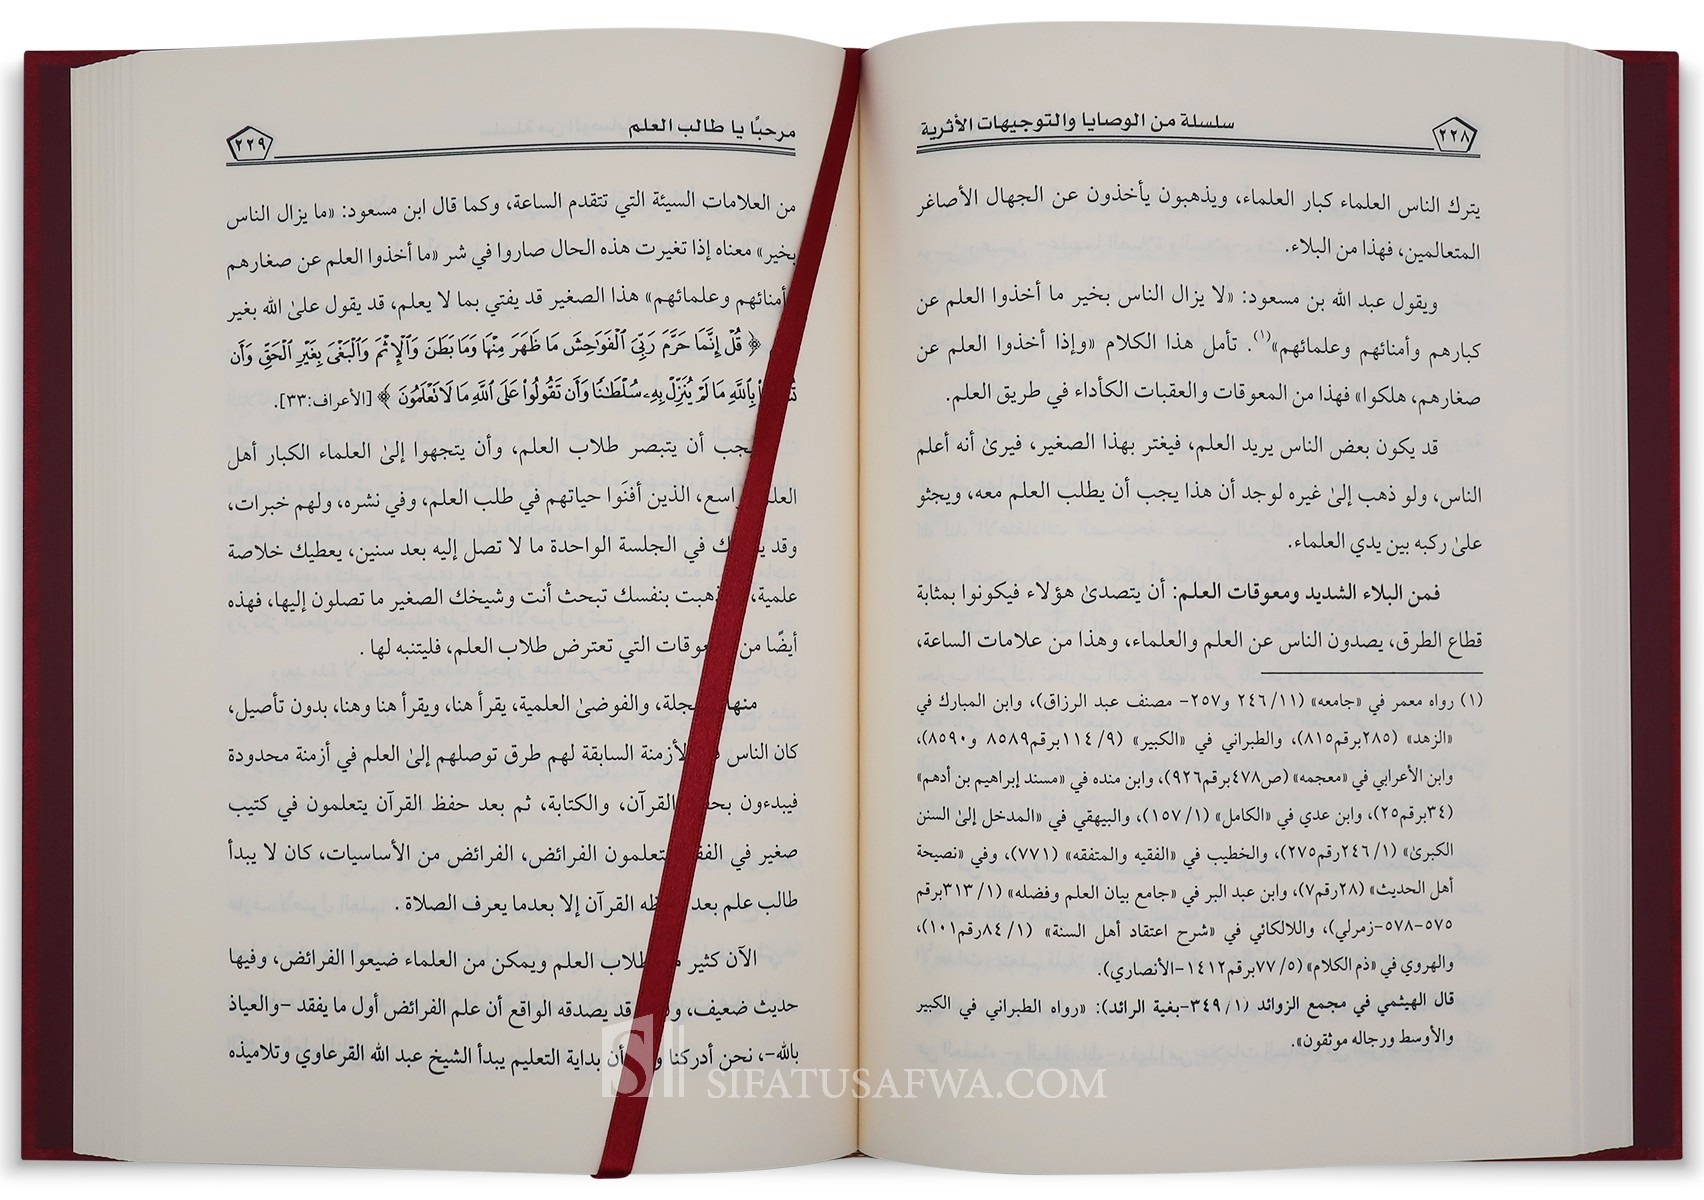 سلسلة من الوصايا والتوجيهات الأثرية
٢٢٨
يترك الناس العلماء كبار العلماء، ويذهبون يأخذون عن الجهال الأصاغر
المتعالمين، فهذا من البلاء.
ويقول عبد الله بن مسعود: «لا يزال الناس بخير ما أخذوا العلم عن
كبارهم وأمنائهم وعلمائهم»(١). تأمل هذا الكلام «وإذا أخذوا العلم عن
صغارهم، هلكوا» فهذا من المعوقات والعقبات الكأداء في طريق العلم.
قد يكون بعض الناس يريد العلم، فيغتر بهذا الصغير، فيرىٰ أنه أعلم
الناس، ولو ذهب إلىٰ غيره لوجد أن هذا يجب أن يطلب العلم معه، ويجثو
علىٰ ركبه بين يدي العلماء.
فمن البلاء الشديد ومعوقات العلم: أن يتصدىٰ هؤلاء فيكونوا بمثابة
قطاع الطرق، يصدون الناس عن العلم والعلماء، وهذا من علامات الساعة،
(١) رواه معمر في «جامعه» (١١/ ٢٤٦ و٢٥٧- مصنف عبد الرزاق)، وابن المبارك في
«الزهد» (٢٨٥برقم٨١٥)، والطبراني في «الكبير» (٩/ ١١٤برقم٨٥٨٩ و٨٥٩٠)،
وابن الأعرابي في «معجمه» (ص٤٧٨برقم٩٢٦)، وابن منده في «مسند إبراهيم بن أدهم»
(٣٤برقم٢٥)، وابن عدي في «الكامل» (١/ ١٥٧)، والبيهقي في «المدخل إلىٰ السنن
الكبرىٰ» (١/ ٢٤٦رقم٢٧٥)، والخطيب في «الفقيه والمتفقه» (٧٧١)، وفي «نصيحة
أهل الحديث» (٢٨رقم٧)، وابن عبد البر في «جامع بيان العلم وفضله» (١/ ٣١٣برقم
٥٧٥-٥٧٨-زمرلي)، واللالكائي في «شرح اعتقاد أهل السنة» (١/ ٨٤رقم١٠١)،
والهروي في «ذم الكلام» (٥/ ٧٧برقم١٤١٢-الأنصاري).
قال الهيثمي في مجمع الزوائد (١/ ٣٤٩-بغية الرائد): «رواه الطبراني في الكبير
والأوسط ورجاله موثقون».
مرحبًا يا طالب العلم
٢٢٩
من العلامات السيئة التي تتقدم الساعة، وكما قال ابن مسعود: «ما يزال الناس
بخير» معناه إذا تغيرت هذه الحال صاروا في شر «ما أخذوا العلم عن صغارهم
وأمنائهم وعلمائهم» هذا الصغير قد يفتي بما لا يعلم، قد يقول علىٰ الله بغير
﴿ قُلۡ إِنَّمَا حَرَّمَ رَبِّيَ ٱلۡفَوَٰحِشَ مَا ظَهَرَ مِنۡهَا وَمَا بَطَنَ وَٱلۡإِثۡمَ وَٱلۡبَغۡيَ بِغَيۡرِ ٱلۡحَقِّ وَأَن
بِٱللَّهِ مَا لَمۡ يُنَزِّلۡ بِهِۦ سُلۡطَٰنٗا وَأَن تَقُولُواْ عَلَى ٱللَّهِ مَا لَا تَعۡلَمُونَ ﴾ [الأعراف:٣٣].
أن يتبصر طلاب العلم، وأن يتجهوا إلىٰ العلماء الكبار أهل
العلم الذين أفنَوا حياتهم في طلب العلم، وفي نشره، ولهم خبرات،
وقد في الجلسة الواحدة ما لا تصل إليه بعد سنين، يعطيك خلاصة
علمية، ذهبت بنفسك تبحث أنت وشيخك الصغير ما تصلون إليها، فهذه
أيضًا من المعوقات التي تعترض طلاب العلم، فليتنبه لها .
منها العجلة، والفوضىٰ العلمية، يقرأ هنا، ويقرأ هنا وهنا، بدون تأصيل،
كان الناس في الأزمنة السابقة لهم طرق توصلهم إلىٰ العلم في أزمنة محدودة
فيبدءون بحفظ القرآن، والكتابة، ثم بعد حفظ القرآن يتعلمون في كتيب
صغير في الفقه يتعلمون الفرائض، الفرائض من الأساسيات، كان لا يبدأ
طالب علم بعد حفظه القرآن إلا بعدما يعرف الصلاة .
الآن كثير من طلاب العلم ويمكن من العلماء ضيعوا الفرائض، وفيها
حديث ضعيف، قد يصدقه الواقع أن علم الفرائض أول ما يفقد -والعياذ
بالله-، نحن أدركنا أن بداية التعليم يبدأ الشيخ عبد الله القرعاوي وتلاميذه
SIFATUSAFWA.COM